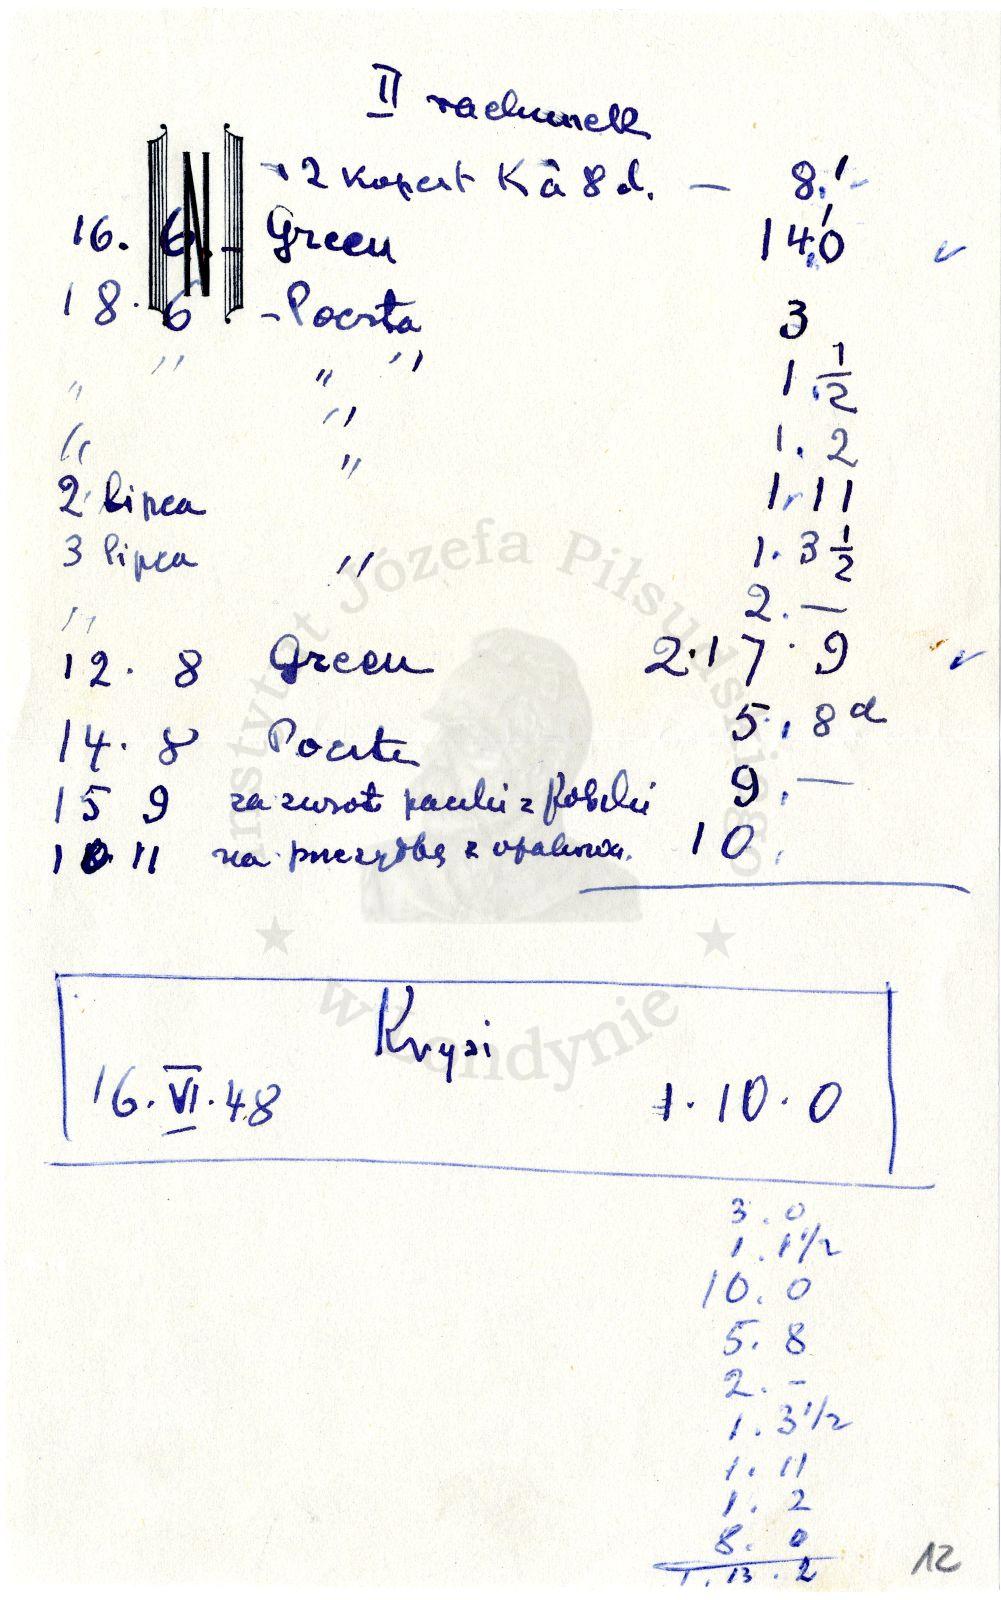 II rachunek
12 kopert K à 8 d. — 8.
N
16. 6. - Green 14.0
18. 6 - Poczta 3
" " " " 1. 1/2
" " 1. 2
2 lipca " 1. 11
3 lipca " 1. 3 1/2
" 2. —
12. 8 Green 2.17.9
14. 8 Poczta 5. 8 d
15 9 za zwrot paczki z 9. —
11 na z 10.
Krysi
16. VI. 48 1. 10. 0
3. 0
1. 1 1/2
10. 0
5. 8
2. -
1. 3 1/2
1. 11
1. 2
8. 0
1. 13. 2
12
Instytut Józefa Piłsudskiego
w Londynie